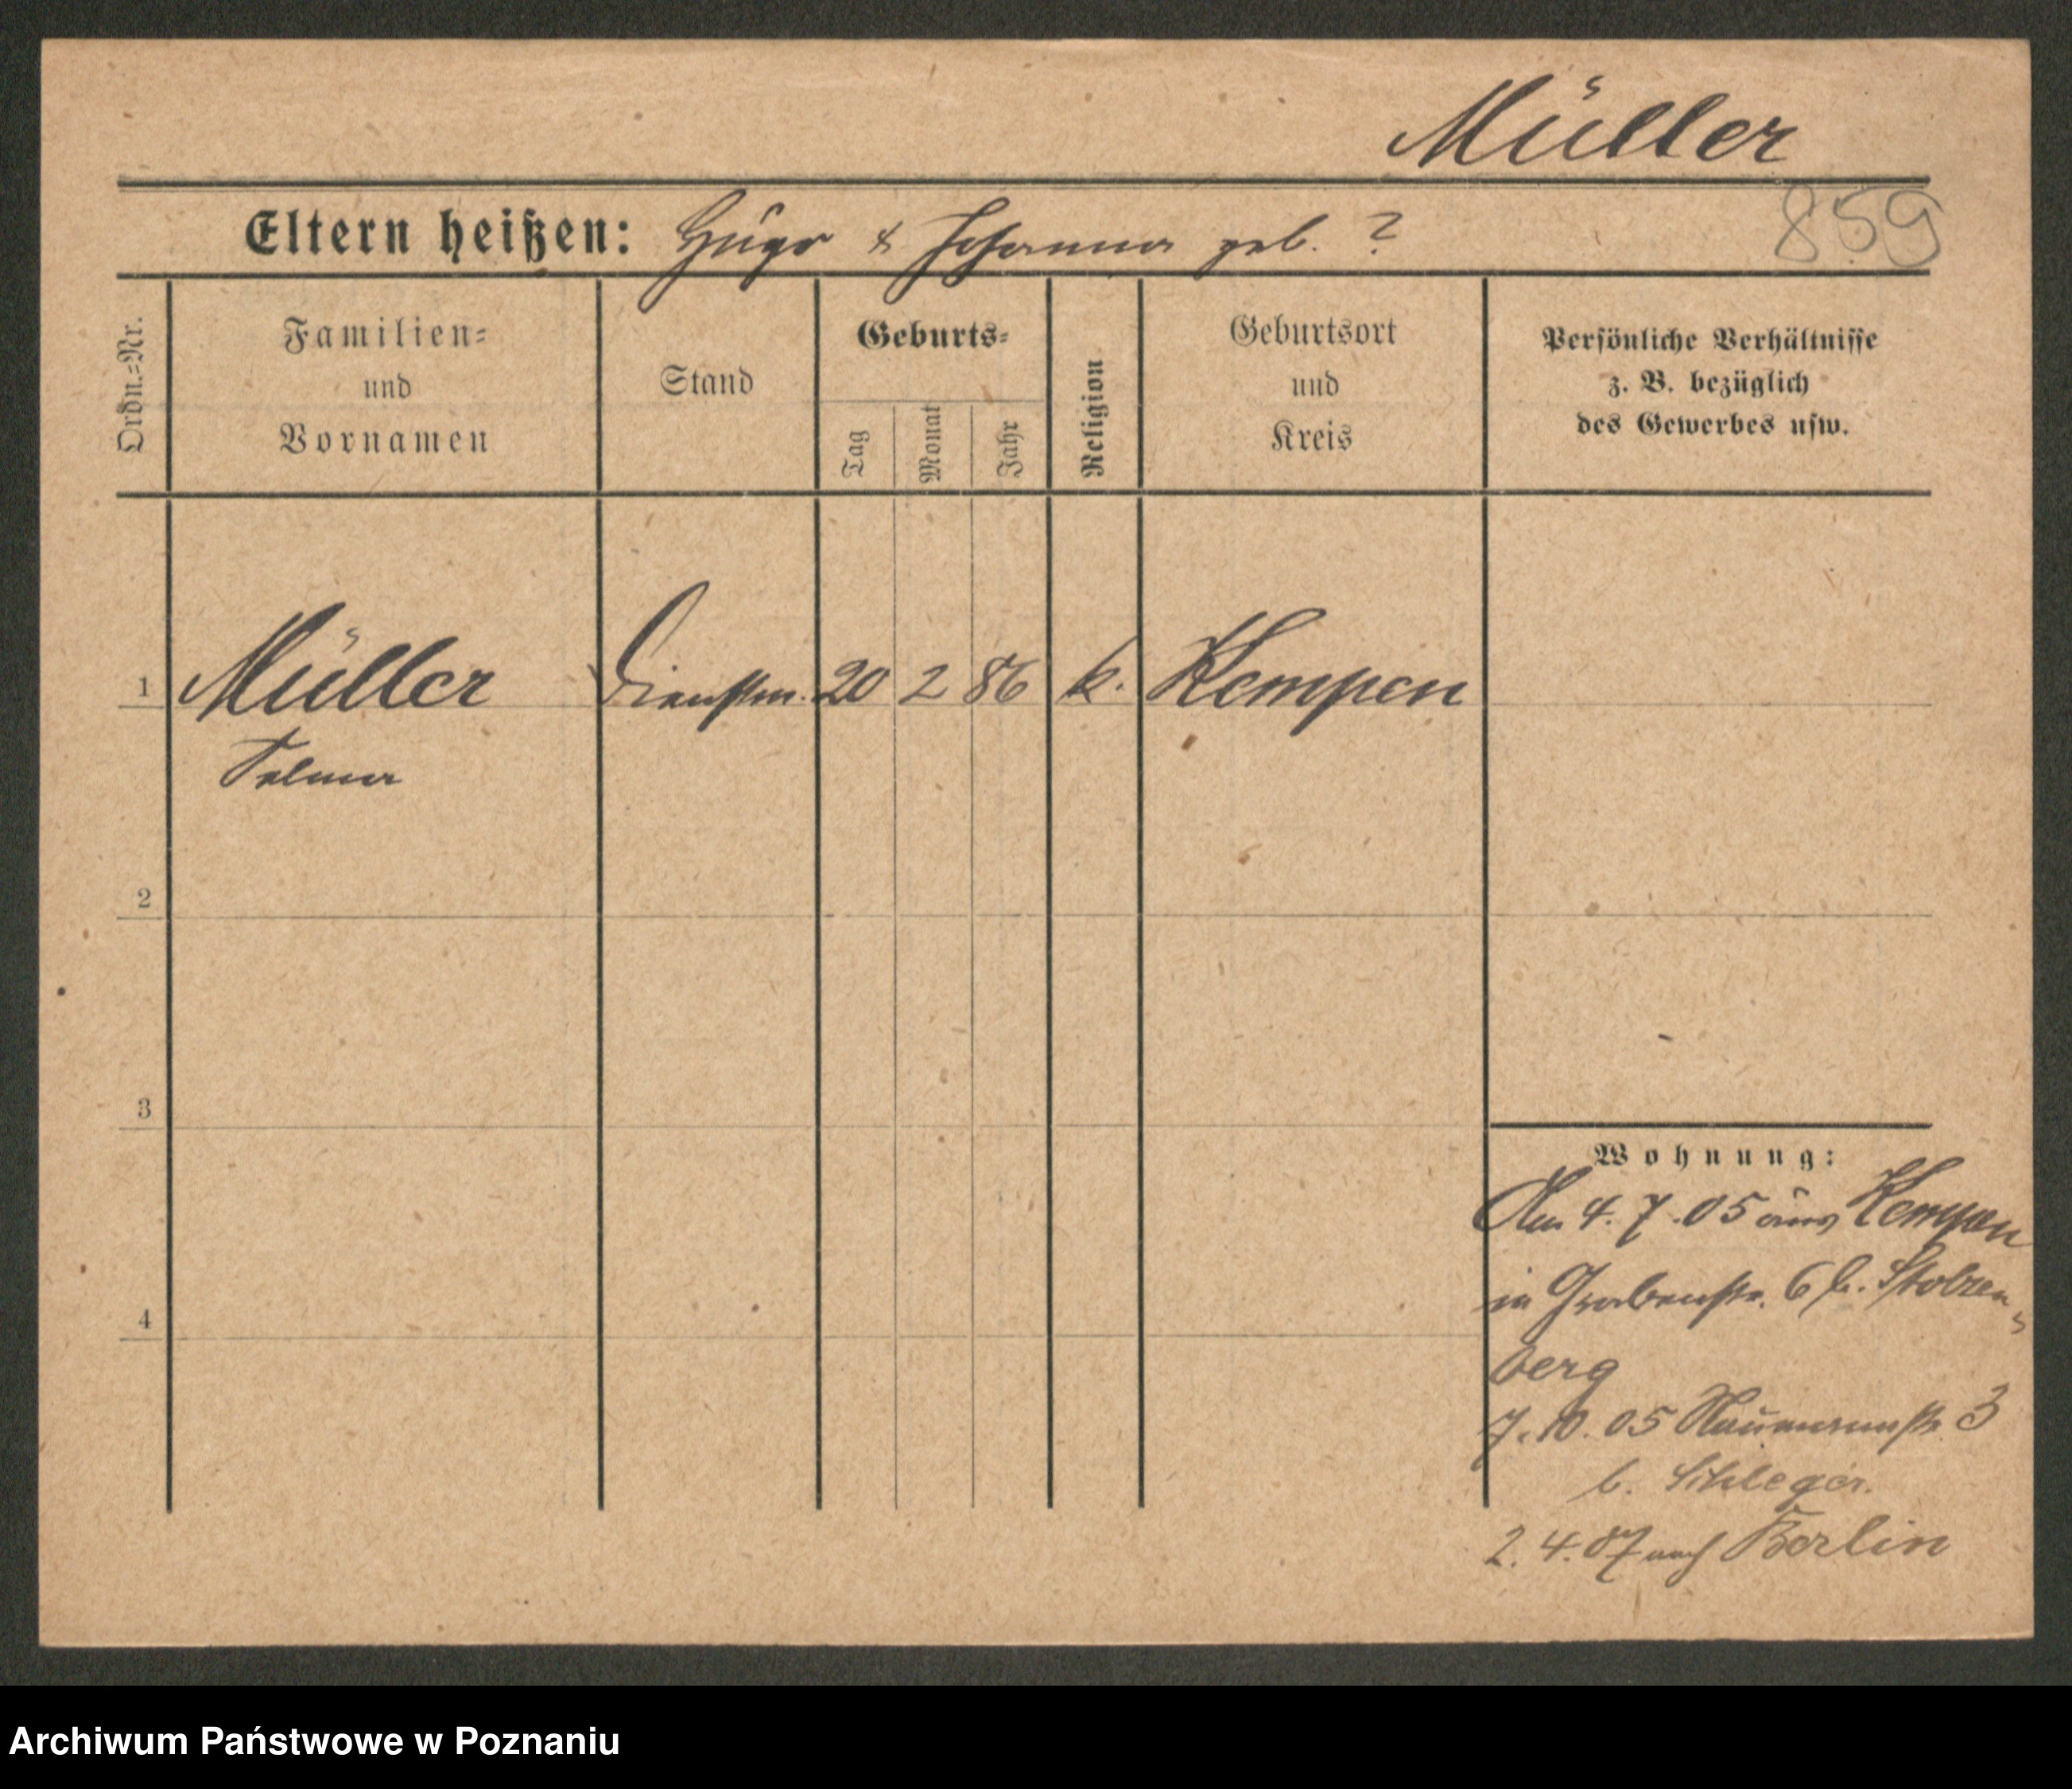 Müller
859
Eltern heißen: Hugo & Johanna geb. ?
Ordn.=Nr.
Familien=
und
Vornamen
Stand
Geburts=
Tag
Monat
Jahr
Religion
Geburtsort
und
Kreis
Persönliche Verhältnisse
z. B. bezüglich
des Gewerbes usw.
1 Müller Dienstm. 20 2 86 k. Kempen
Selma
2
3
4
Wohnung:
4. 7. 05 aus Kempen
in Grabenstr. 6 b. Stolzen=
berg
7. 10. 05 Naumannstr. 3
b. Schleger.
2. 4. 07 nach Berlin
Archiwum Państwowe w Poznaniu